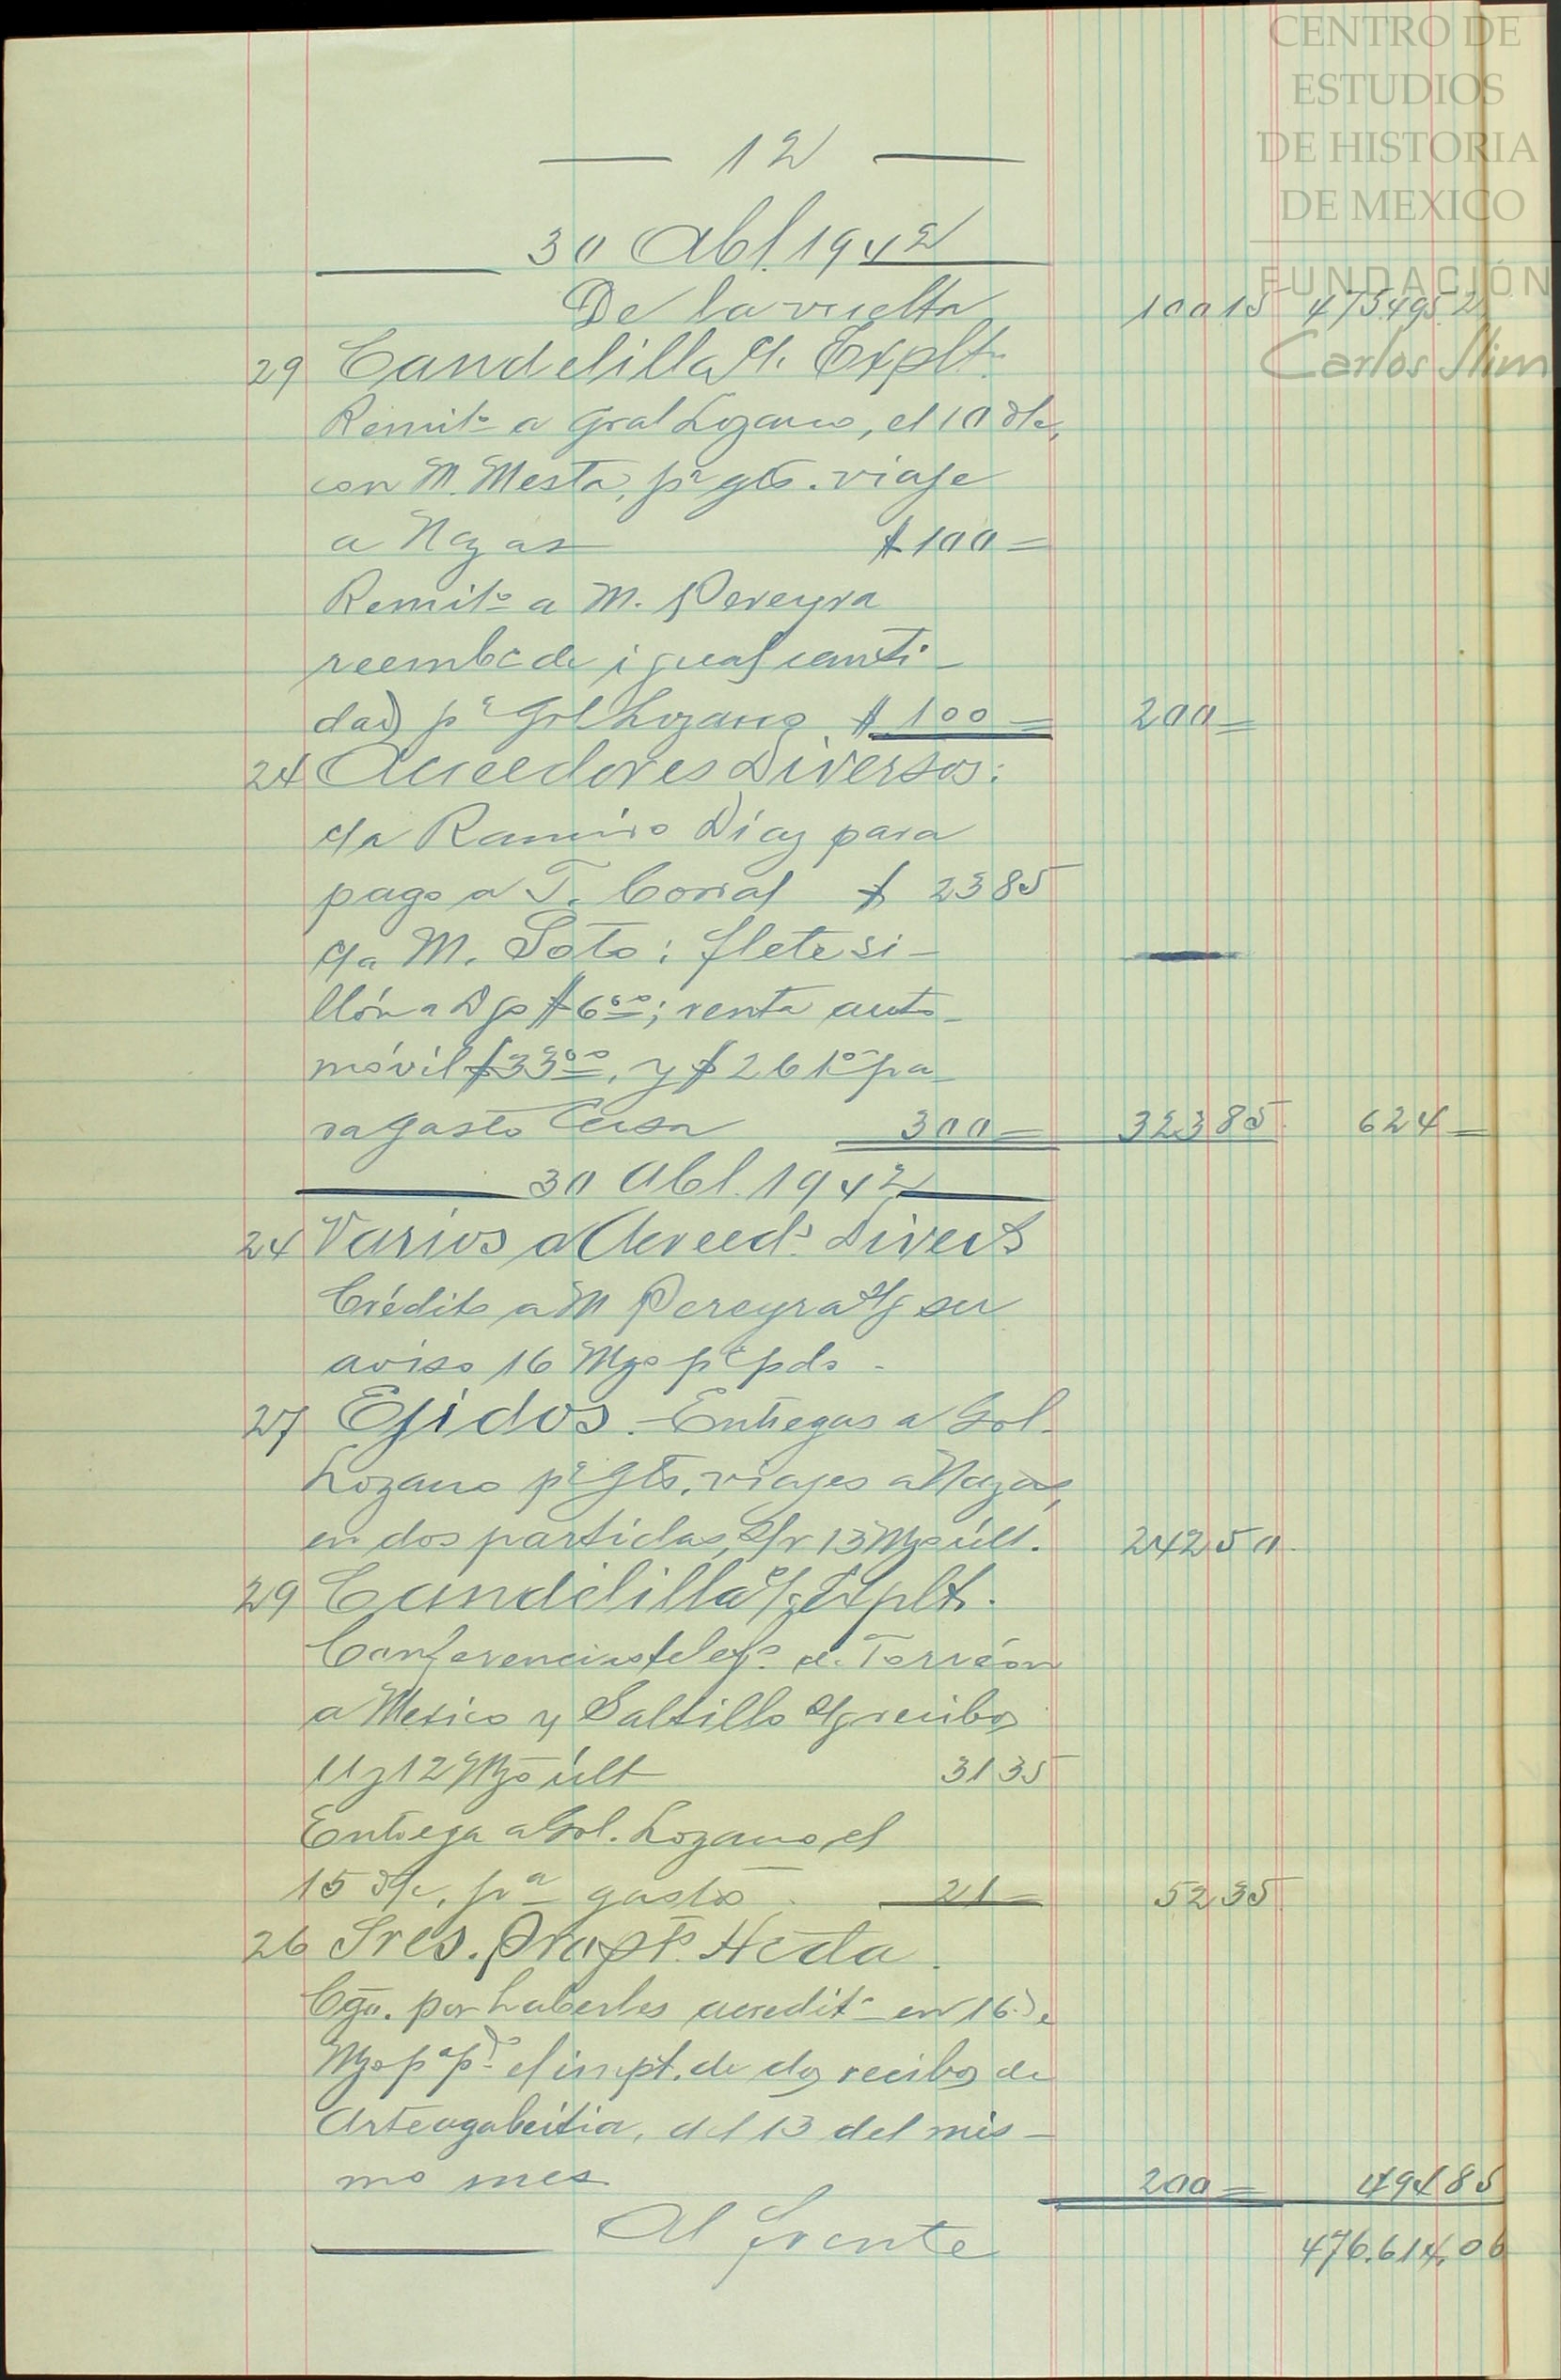 CENTRO DE
ESTUDIOS
DE HISTORIA
DE MEXICO
FUNDACIÓN
Carlos Slim
12
30 Abl. 1942
De la vuelta 100 15 475495 21
29 Candelilla c/. Explt.
Remito a Gral Lozano, el 10 d/c,
con M. Mesta, pa gts. viaje
a Nazas $ 100 =
Remito a M. Pereyra
reembc de igual canti-
dad pa Gol Lozano $ 100 = 200 =
24 Acreedores Diversos:
c/a Ramiro Díaz para
pago a T. Corral $ 23 85
c/a M. Soto: flete si-
llón a Dgo $ 6 00; venta auto-
móvil $ 33 00, y $ 261 00 pa-
ra gasto Casa 300 = 323 85 624 =
30 Abl. 1942
24 Varios a Acreeds. Divers
Crédito a M Pereyra s/g su
aviso 16 Mzo pº pdo.
27 Ejidos. - Entregas a Gol.
Lozano pa Gts. viajes a Nazas,
en dos partidas, s/r 13 Mzo últ. 242 50
29 Candelilla c/. Explt.
Conferencias telefs. de Torreón
a Mexico y Saltillo s/g recibos
11 y 12 Mzo últ 31 35
Entrega a Gol. Lozano, el
15 d/c, pa gasto 21 = 52 35
26 Sres. Propts. Hcda.
Cgo. por haberles acredito en 16 de
Mzo pº pdo el impt. de dos recibos de
Arteagabeitia, del 13 del mis-
mo mes 200 = 494 85
Al frente 476.614.06